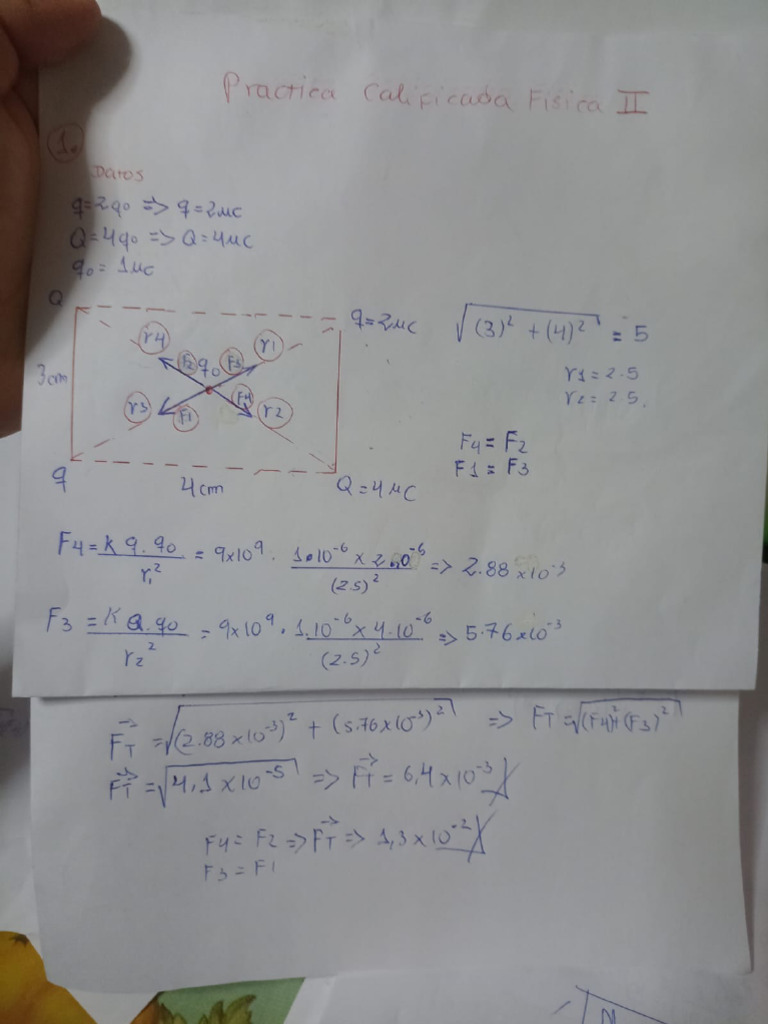 Practica Calificada Fisica II
1.
Datos
q=2q0 => q=2μc
Q=4q0 => Q=4μc
q0= 1μc
Q
q=2μc
√(3)² + (4)² = 5
r4
r1
F2
q0
F3
3cm
r1=2.5
r2=2.5.
r3
F1
F4
r2
F4= F2
F1= F3
q
4cm
Q=4μc
F4= K q.q0 / r1² = 9x10⁹ . 1.10⁻⁶ x 2.10⁻⁶ / (2.5)² => 2.88 x10⁻³
F3 = K Q.q0 / r2² = 9x10⁹ . 1.10⁻⁶ x 4.10⁻⁶ / (2.5)² => 5.76 x10⁻³
FT = √(2.88 x10⁻³)² + (5.76 x10⁻³)² => FT=√(F4)²+(F3)²
FT =√4,1 x10⁻⁵ => FT = 6,4 x10⁻³
F4= F2 => FT => 1,3 x10⁻²
F3= F1